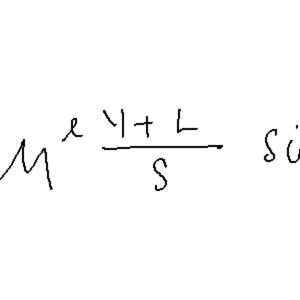 M^e \frac{y + L}{s} si